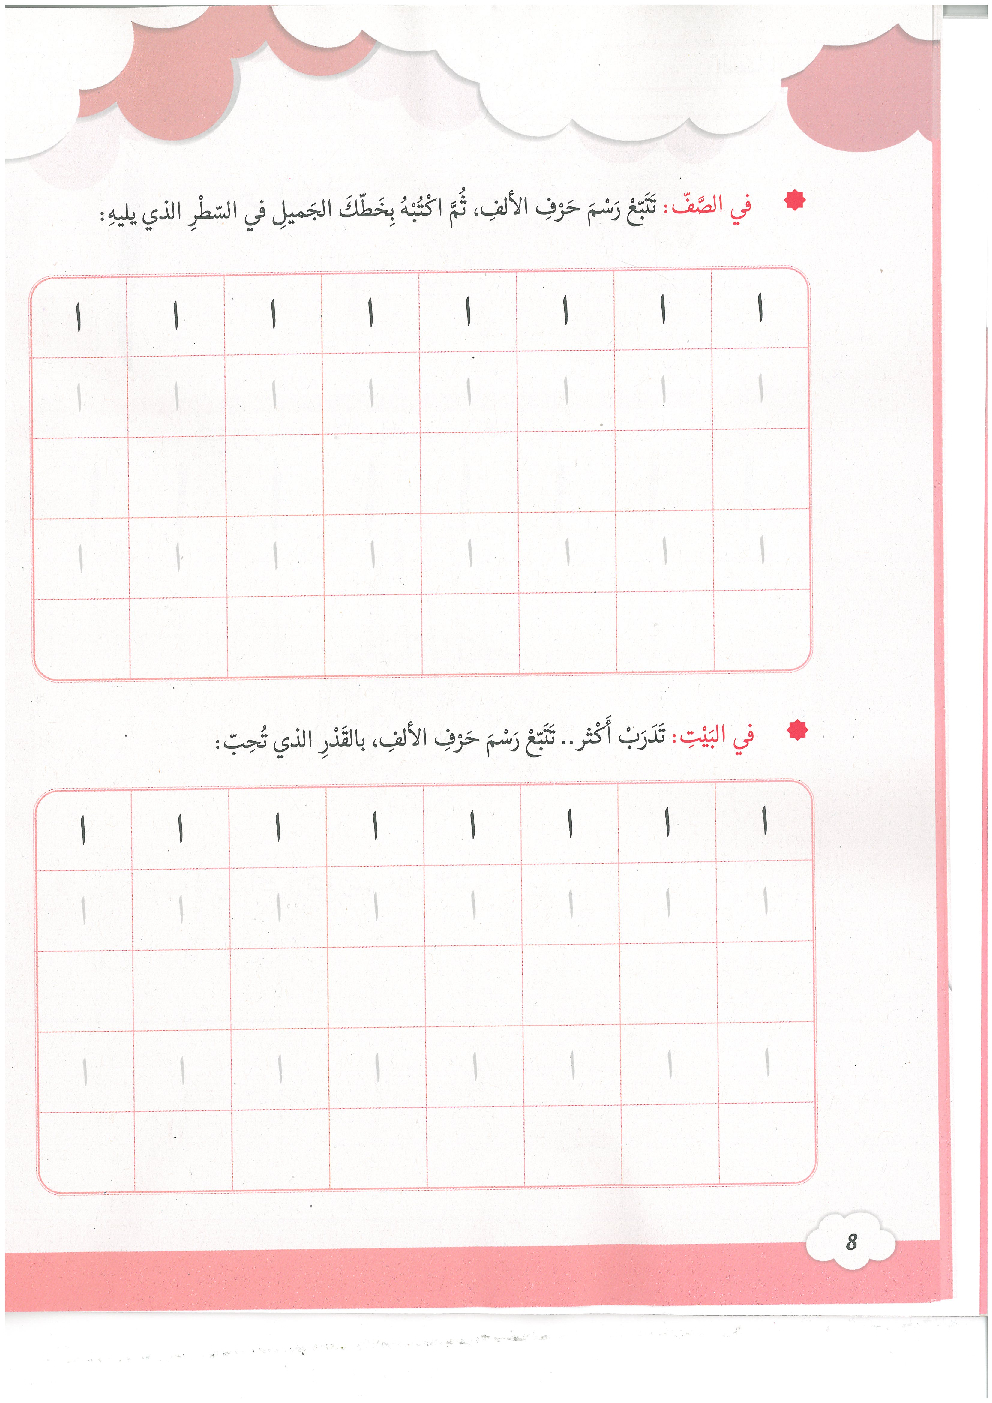 في الصَّفّ: تَتَبّعْ رَسْمَ حَرْفِ الألفِ، ثُمَّ اكْتُبْهُ بِخَطّكَ الجَميلِ في السّطْرِ الذي يليهِ:
ا ا ا ا ا ا ا ا
ا ا ا ا ا ا ا ا
ا ا ا ا ا ا ا ا
في البَيْتِ: تَدَرَبْ أَكْثر.. تَتَبّعْ رَسْمَ حَرْفِ الألفِ، بالقَدْرِ الذي تُحِبّ:
ا ا ا ا ا ا ا ا
ا ا ا ا ا ا ا ا
ا ا ا ا ا ا ا ا
8